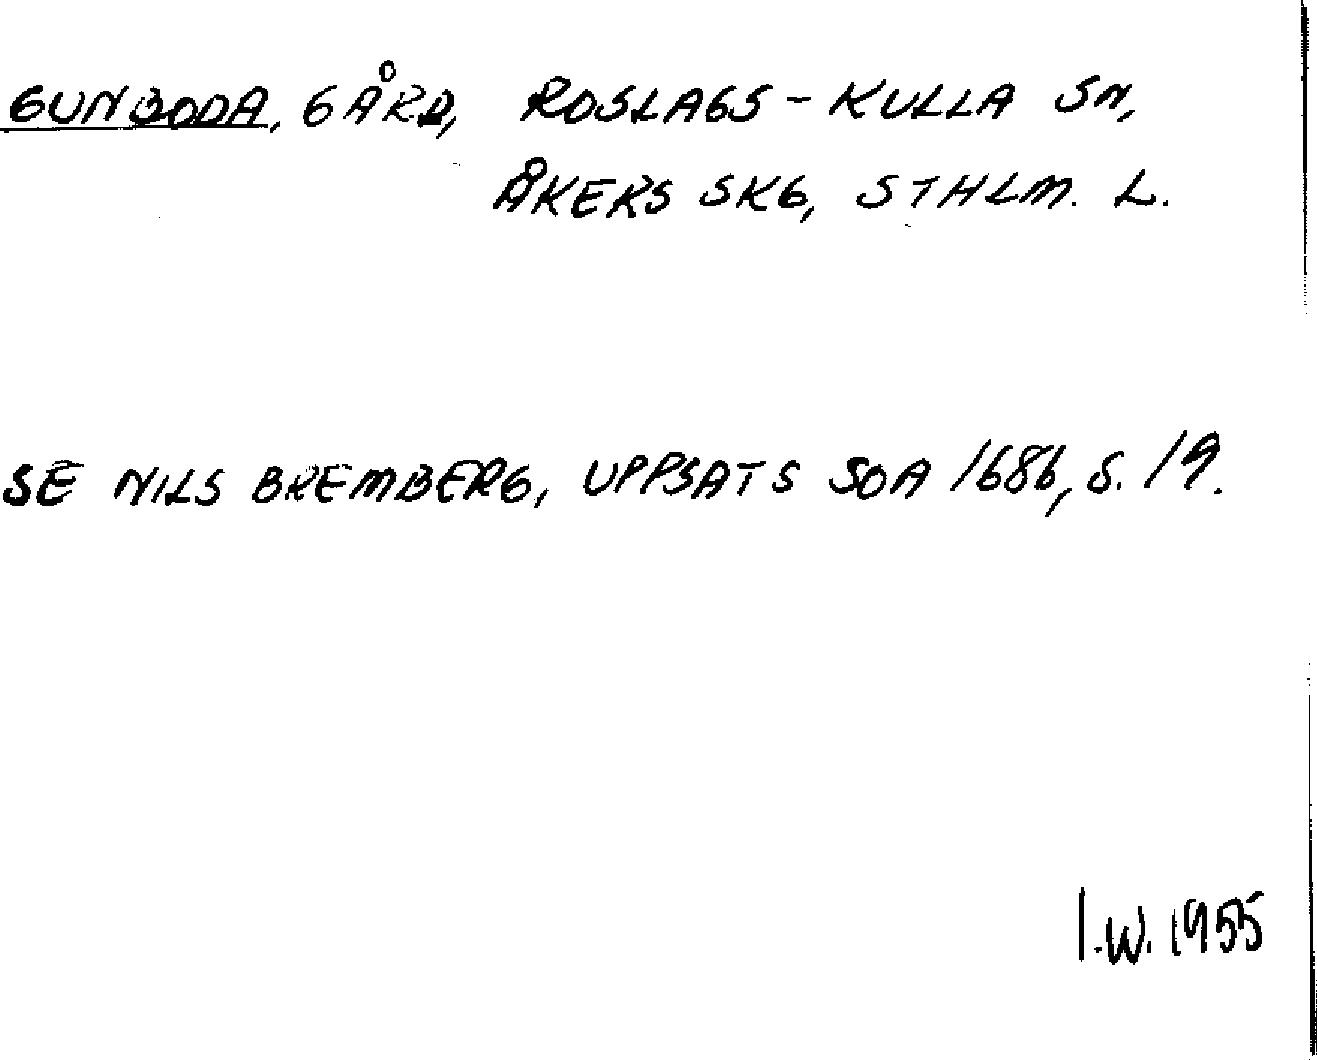 GUNBODA, GÅRD, ROSLAGS-KULLA SN,
ÅKERS SKG, STHLM. L.
SE NILS BREMBERG, UPPSATS SOA 1686, S. 19.
I.W. 1955